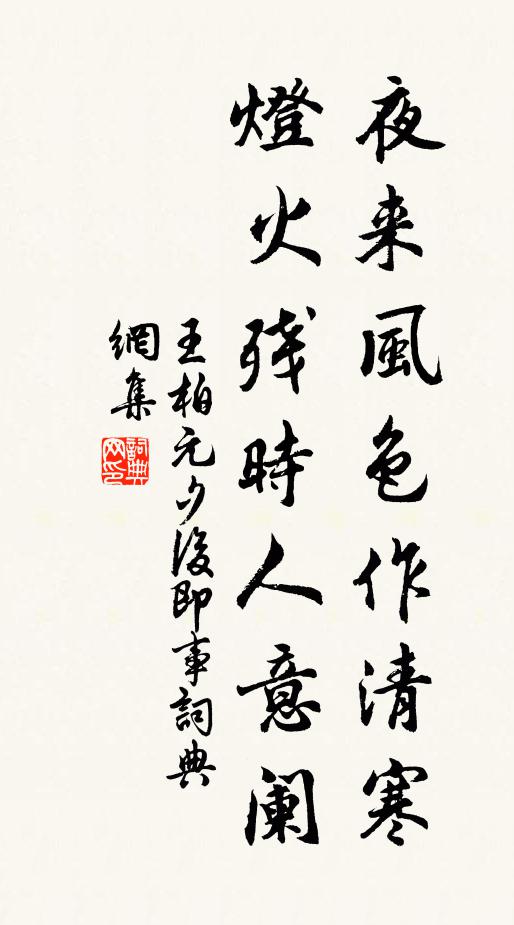 夜来風色作清寒
燈火残時人意阑
王柏元夕後即事詞典
網集
詞典
网印